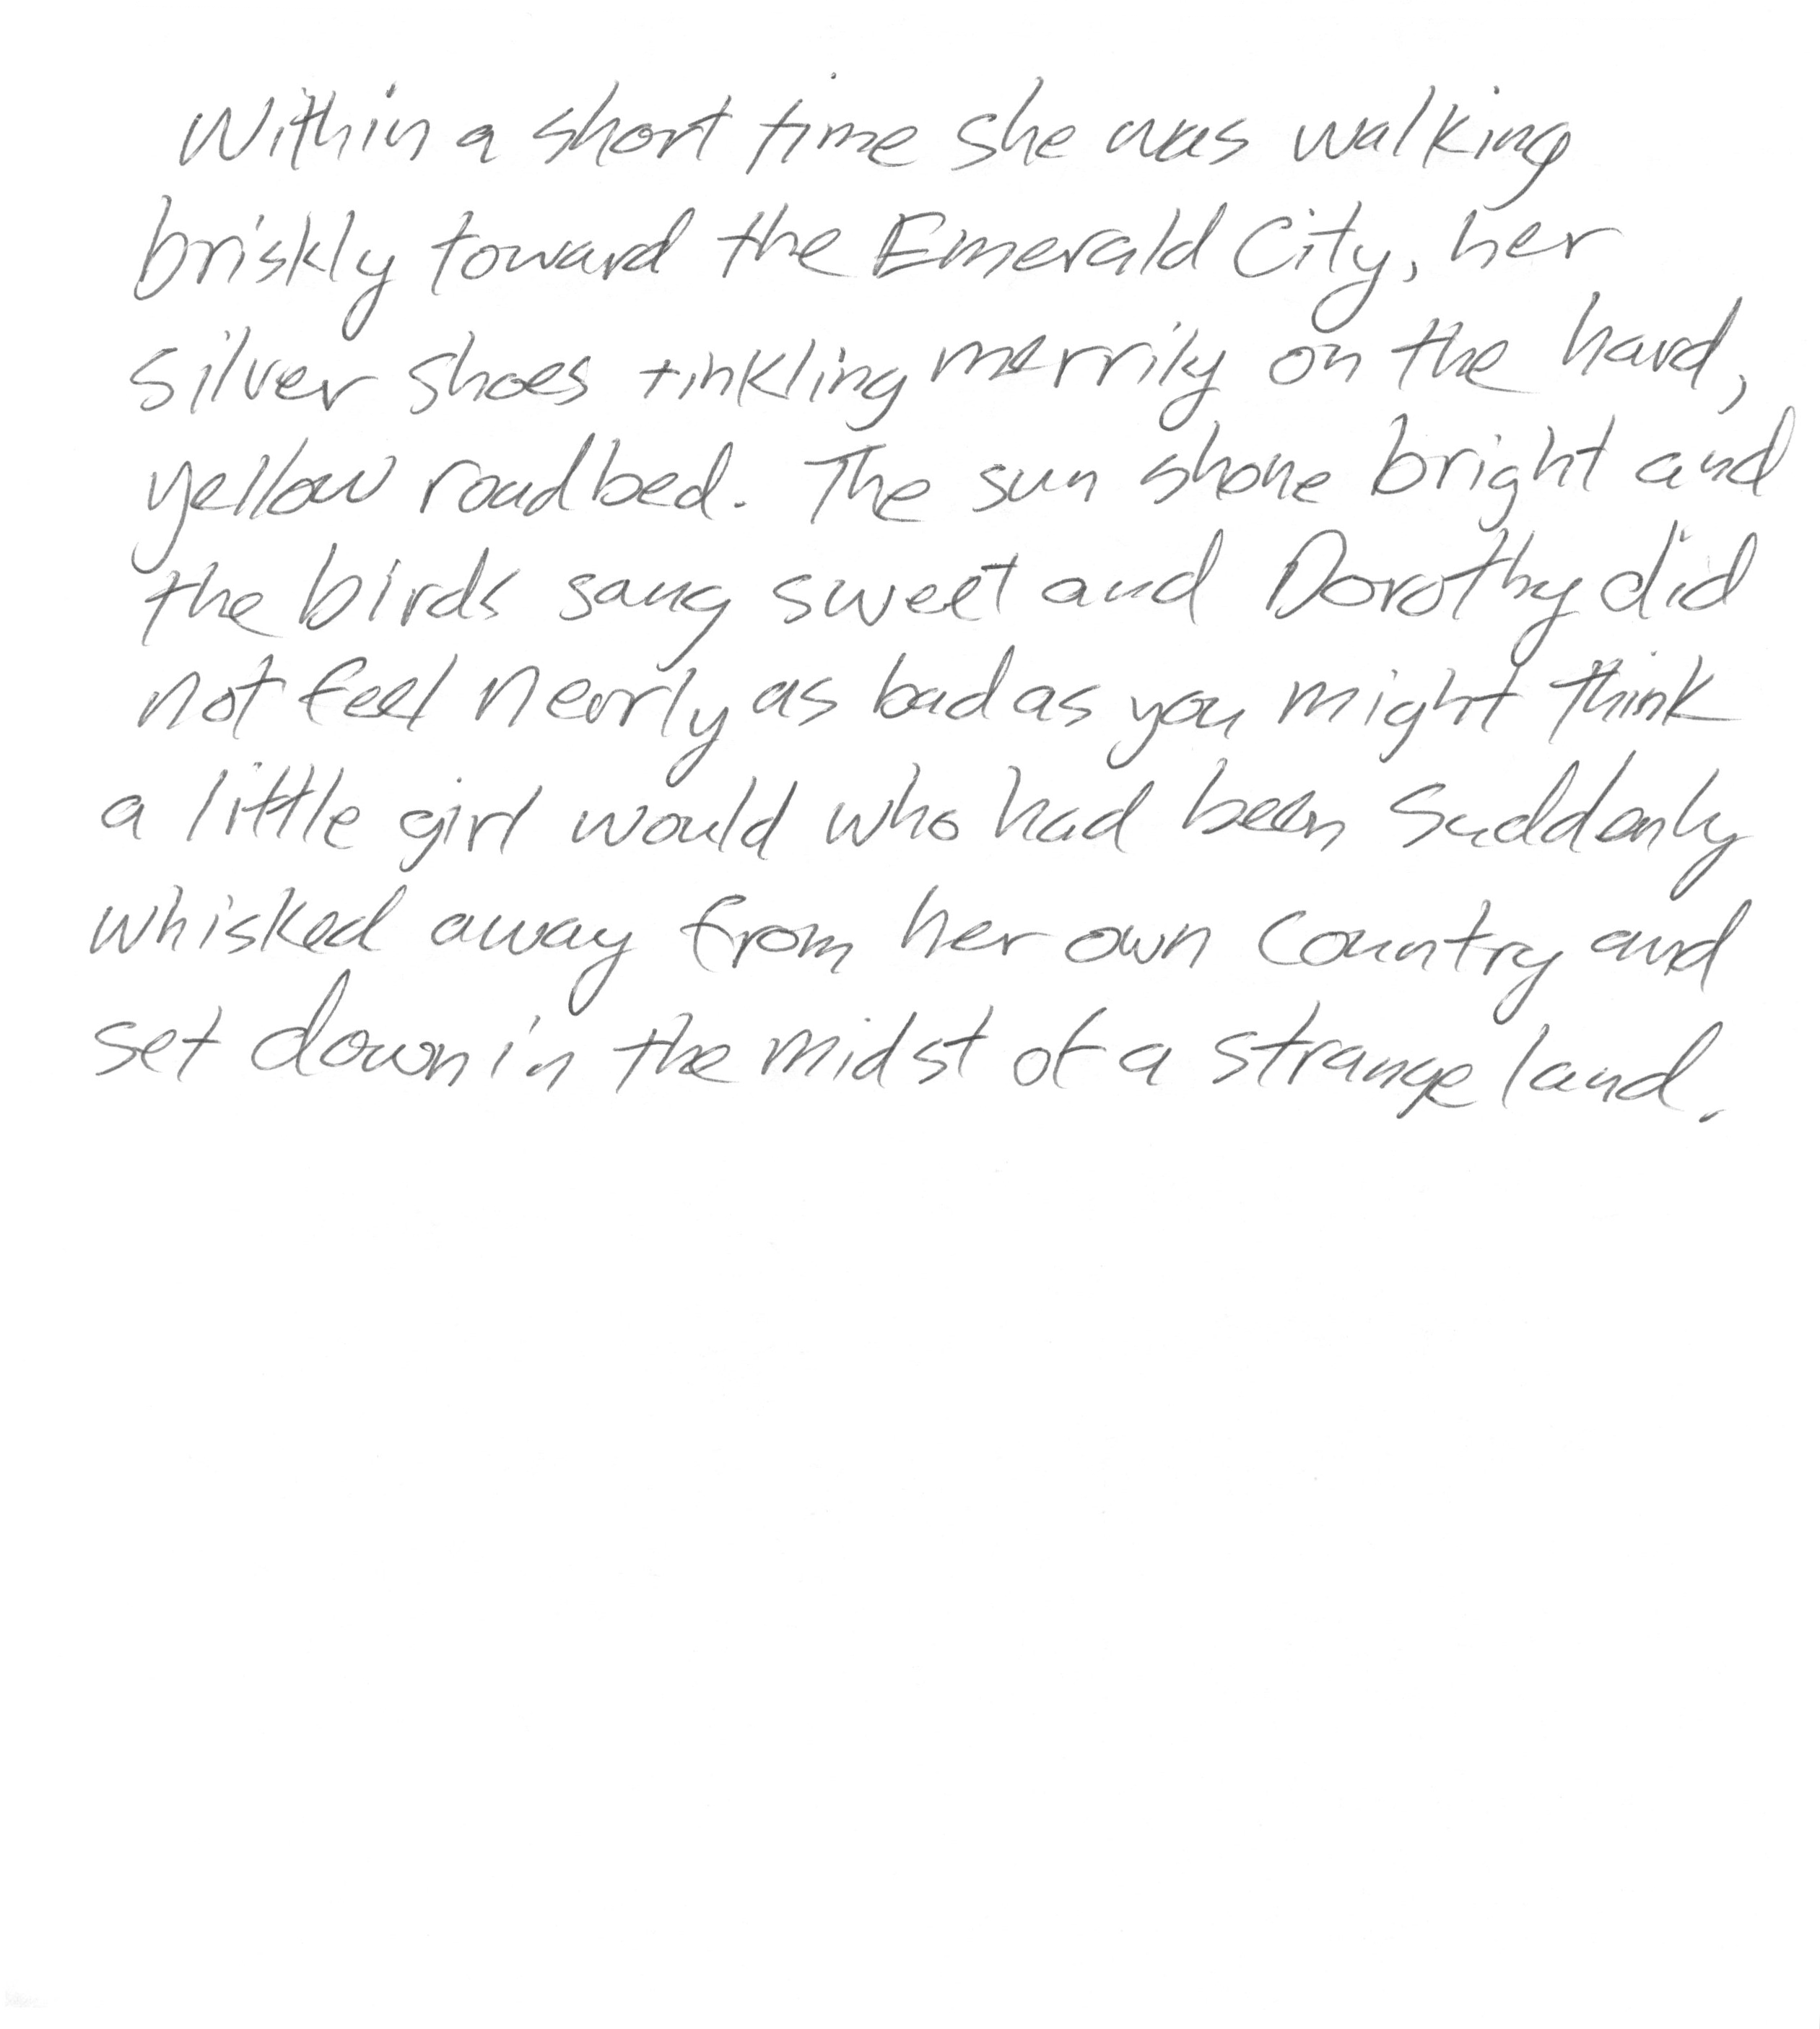 Within a short time she was walking
briskly toward the Emerald City, her
silver shoes tinkling merrily on the hard,
yellow roadbed. The sun shone bright and
the birds sang sweet and Dorothy did
not feel nearly as bad as you might think
a little girl would who had been suddenly
whisked away from her own country and
set down in the midst of a strange land.